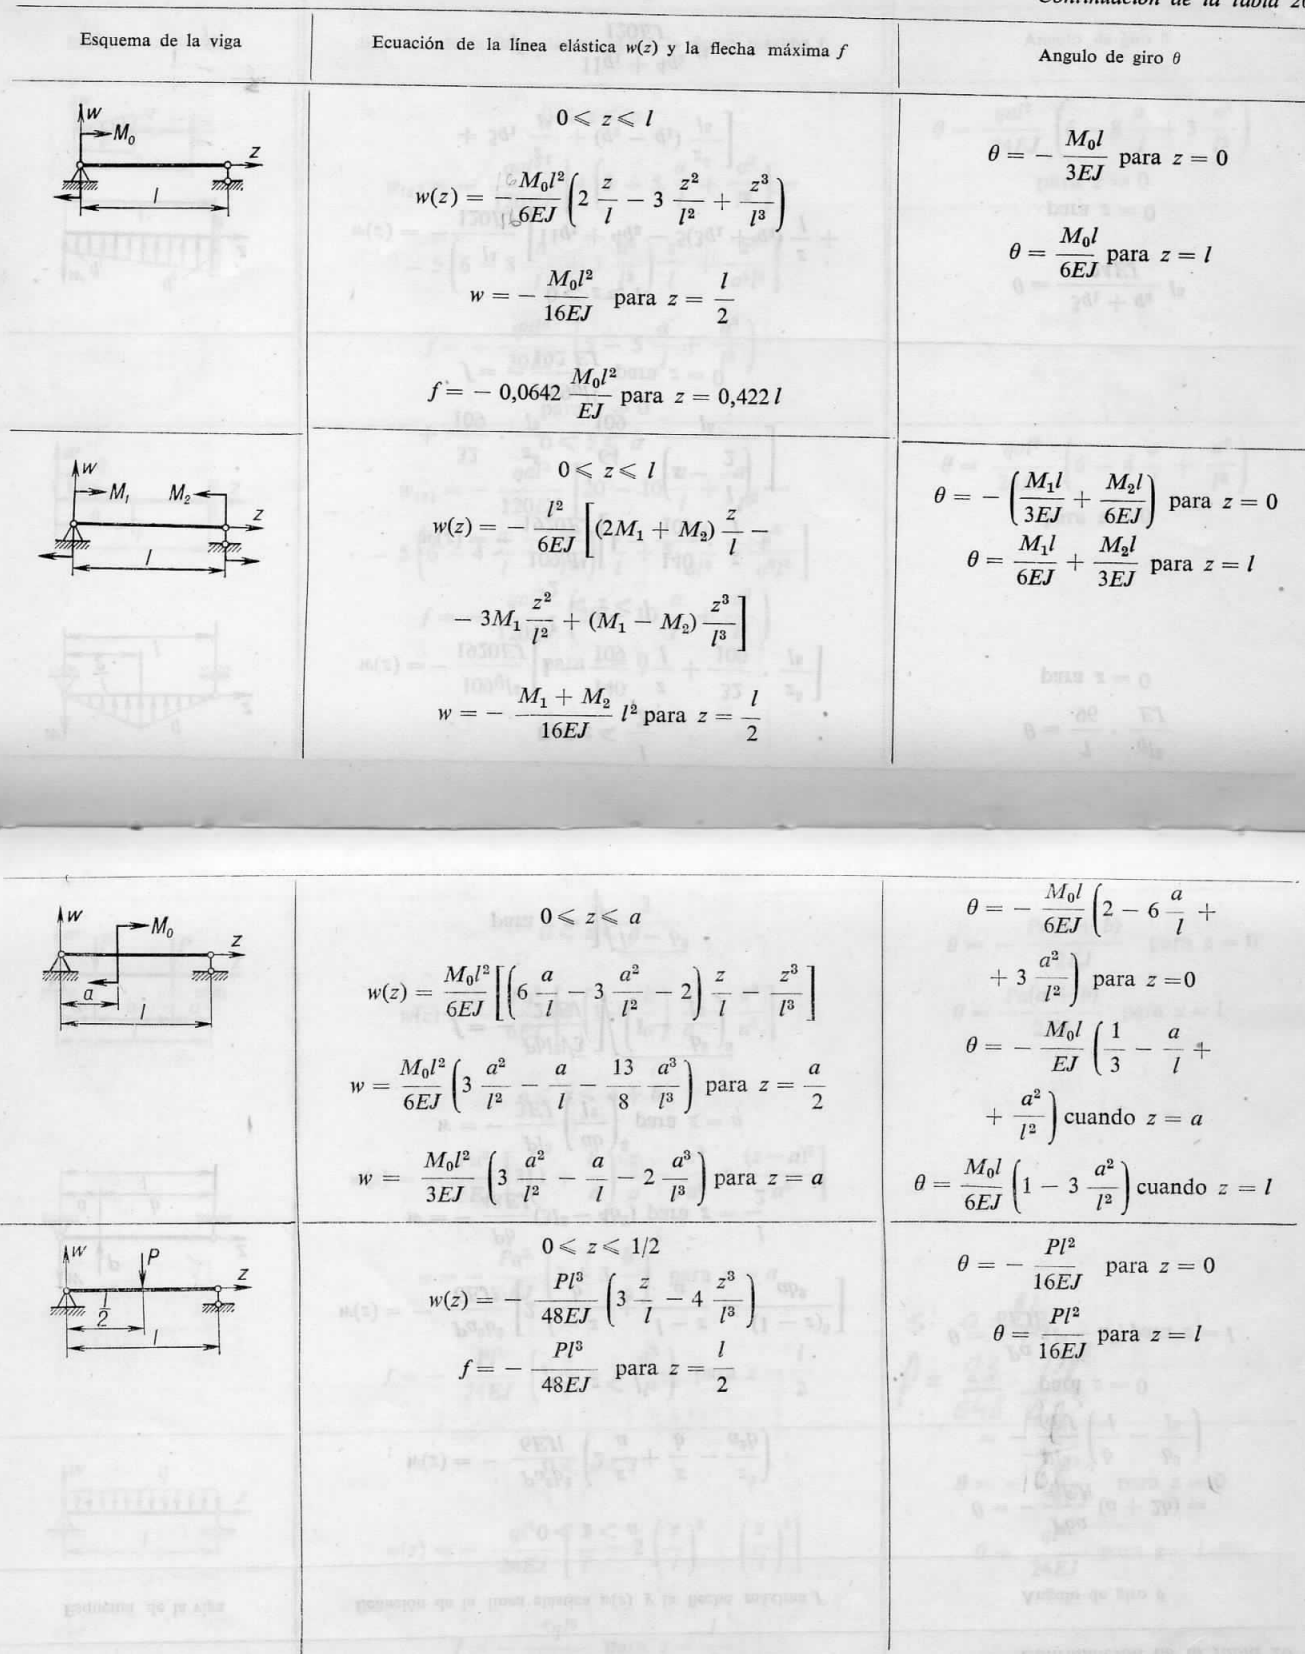 Continuación de la tabla 20
Esquema de la viga
Ecuación de la línea elástica w(z) y la flecha máxima f
Angulo de giro θ
w
M₀
z
l
0 ⩽ z ⩽ l
w(z) = − M₀l²/6EJ (2 z/l − 3 z²/l² + z³/l³)
w = − M₀l²/16EJ para z = l/2
f = − 0,0642 M₀l²/EJ para z = 0,422 l
θ = − M₀l/3EJ para z = 0
θ = M₀l/6EJ para z = l
w
M₁ M₂
z
l
0 ⩽ z ⩽ l
w(z) = − l²/6EJ [(2M₁ + M₂) z/l −
− 3M₁ z²/l² + (M₁ − M₂) z³/l³]
w = − M₁ + M₂/16EJ l² para z = l/2
θ = − (M₁l/3EJ + M₂l/6EJ) para z = 0
θ = M₁l/6EJ + M₂l/3EJ para z = l
w
M₀
z
a
l
0 ⩽ z ⩽ a
w(z) = M₀l²/6EJ [(6 a/l − 3 a²/l² − 2) z/l − z³/l³]
w = M₀l²/6EJ (3 a²/l² − a/l − 13/8 a³/l³) para z = a/2
w = M₀l²/3EJ (3 a²/l² − a/l − 2 a³/l³) para z = a
θ = − M₀l/6EJ (2 − 6 a/l +
+ 3 a²/l²) para z =0
θ = − M₀l/EJ (1/3 − a/l +
+ a²/l²) cuando z = a
θ = M₀l/6EJ (1 − 3 a²/l²) cuando z = l
w
P
z
l/2
l
0 ⩽ z ⩽ 1/2
w(z) = − Pl³/48EJ (3 z/l − 4 z³/l³)
f = − Pl³/48EJ para z = l/2
θ = − Pl²/16EJ para z = 0
θ = Pl²/16EJ para z = l